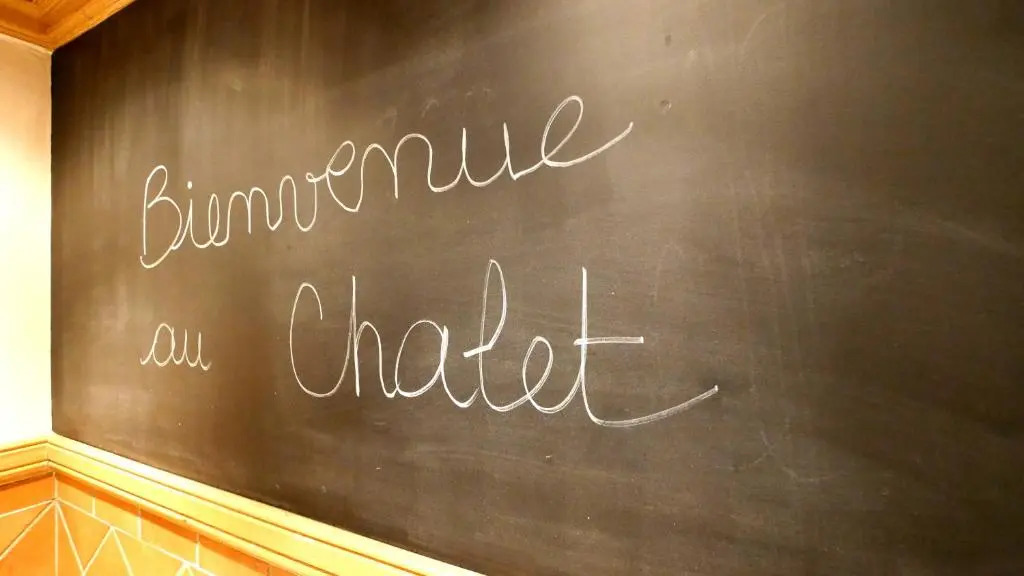 Bienvenue
au Chalet